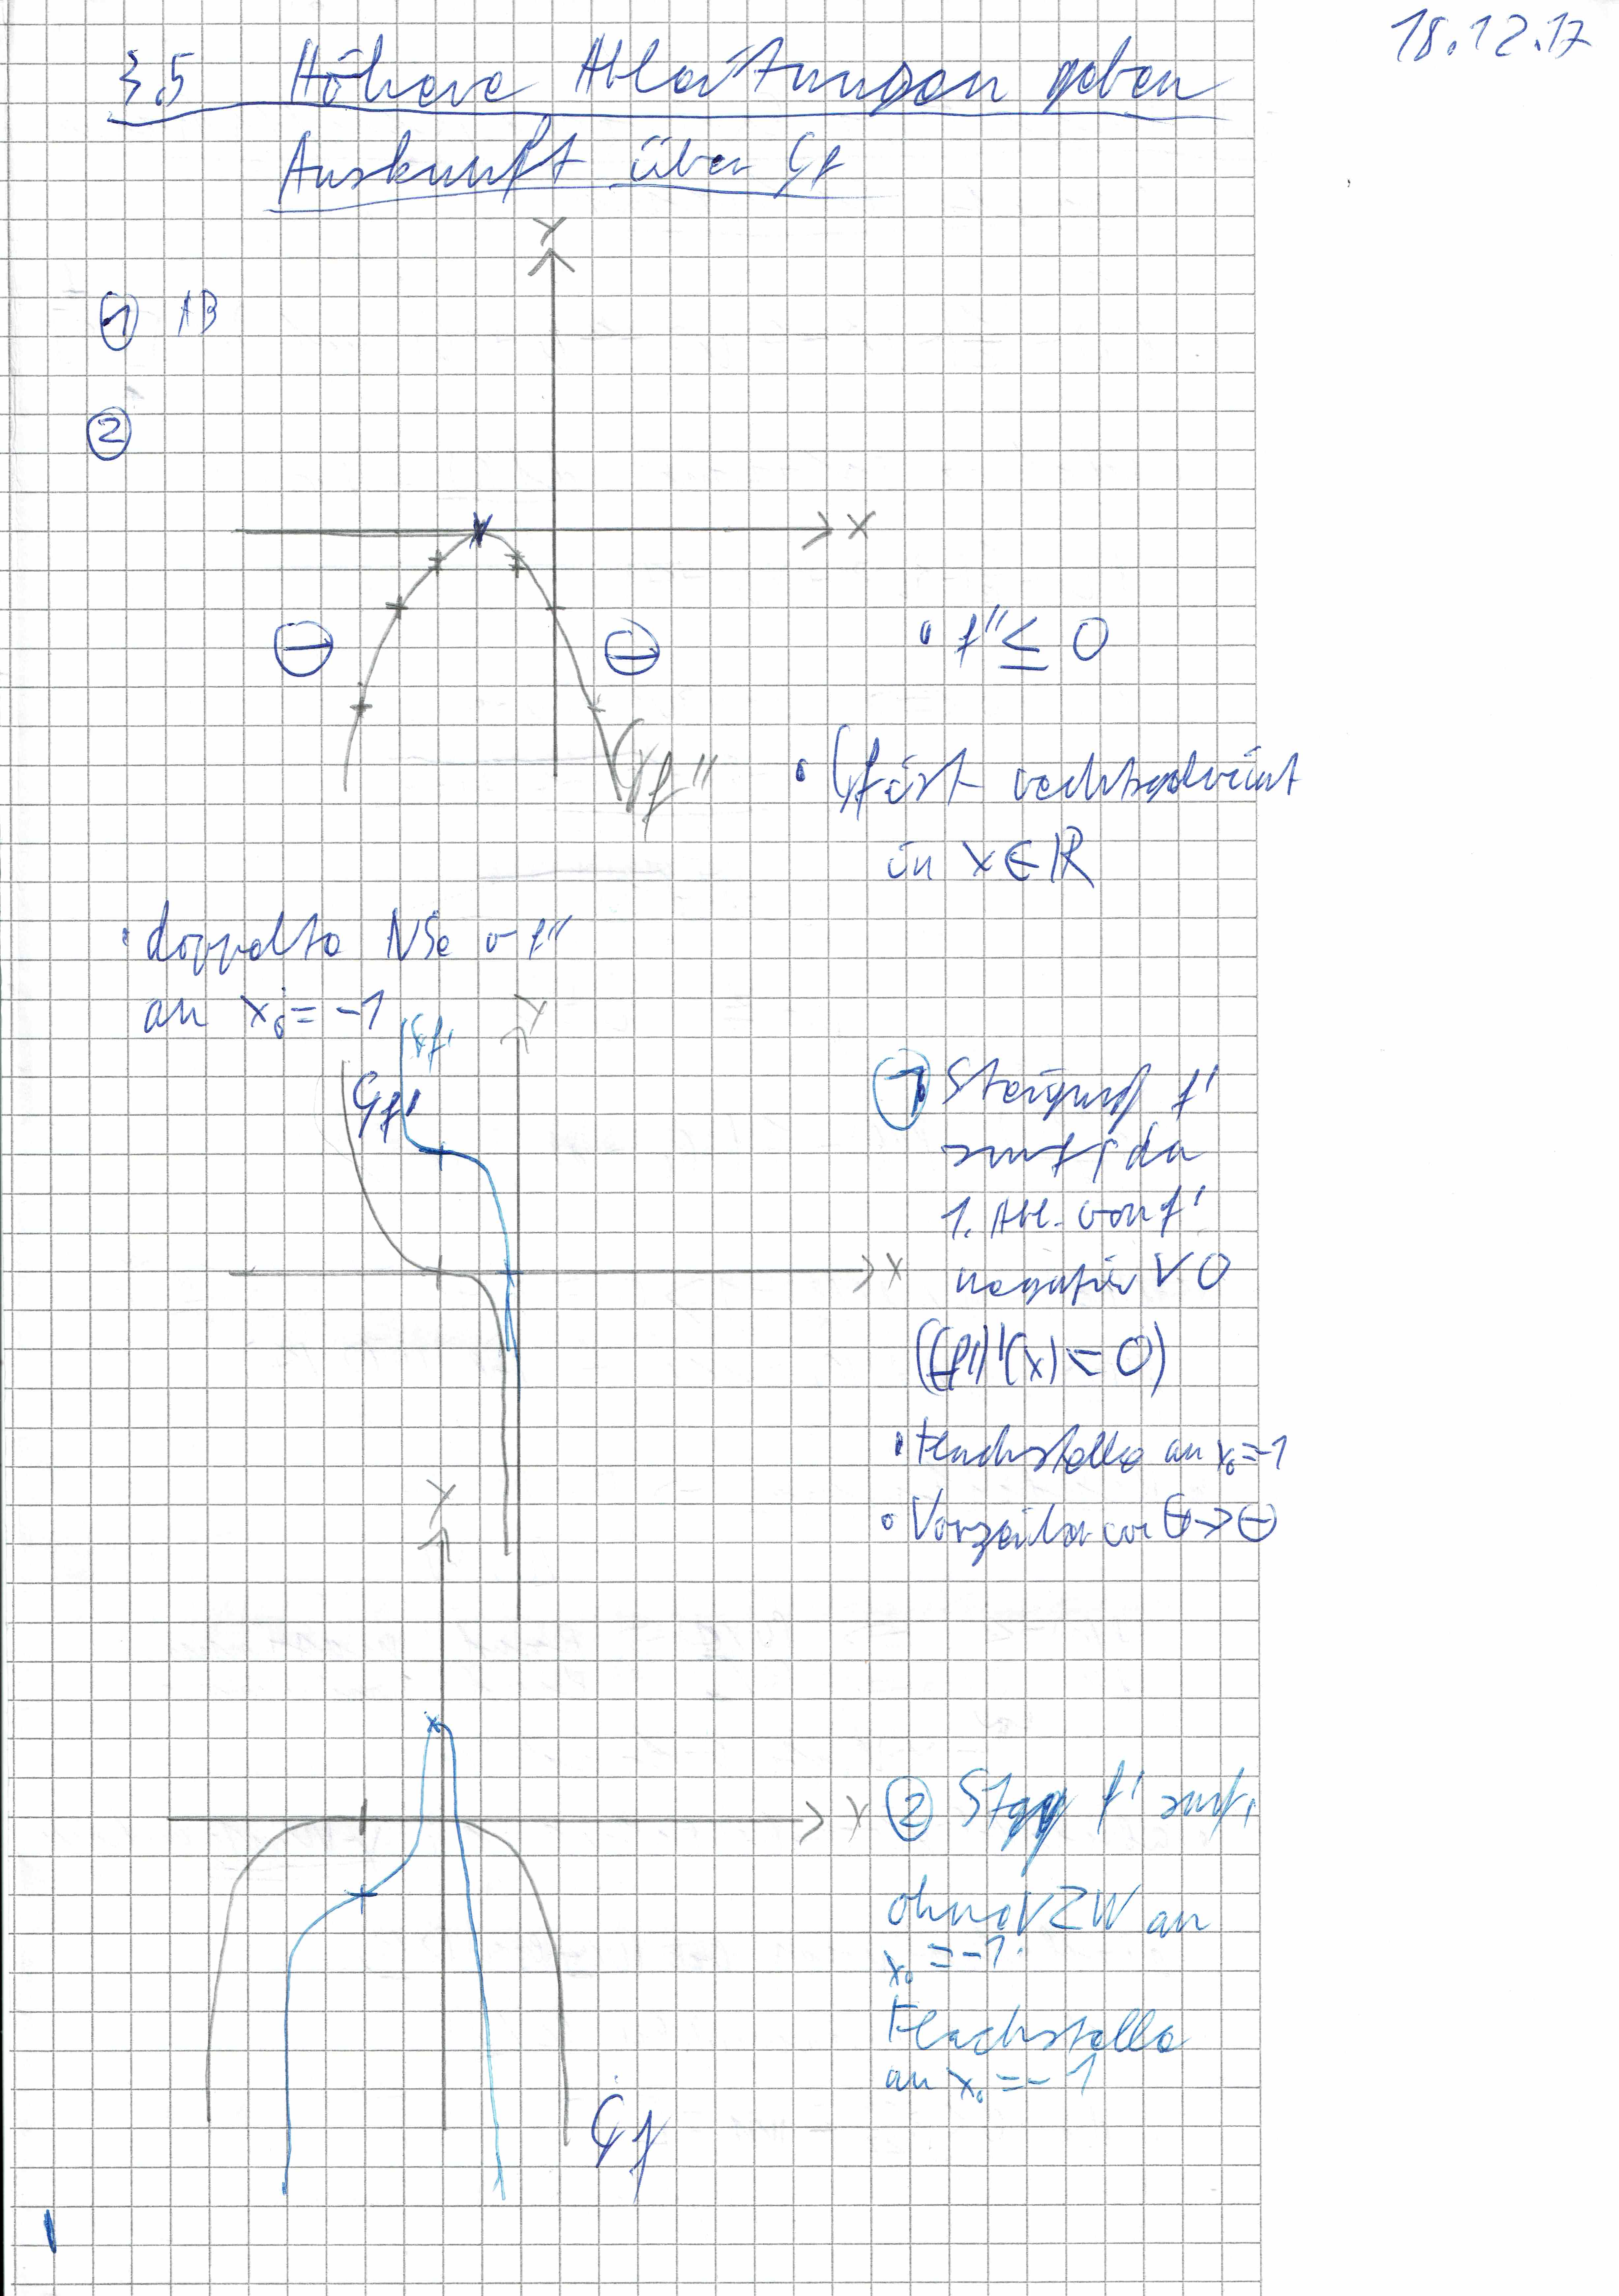 18.12.17
3.5 Höhere Ableitungen geben
Auskunft über Gf
Y
① AB
②
X
⊖ ⊖
• f'' ≤ 0
Gf''
• Gf ist rechtsgekrümmt
in x ∈ ℝ
• doppelte NSe v f''
an x₀ = -1
Y
Gf'
Gf'
① Steigung f'
da
1. Abl. von f'
negativ ∨ 0
X
((f')'(x) ≤ 0)
• Flachstelle an x₀ = -1
Y
• Vorzeichen ⊕ → ⊖
② f'
ohne VZW an
x₀ = -1
Flachstelle
an x₀ = -1
Gf